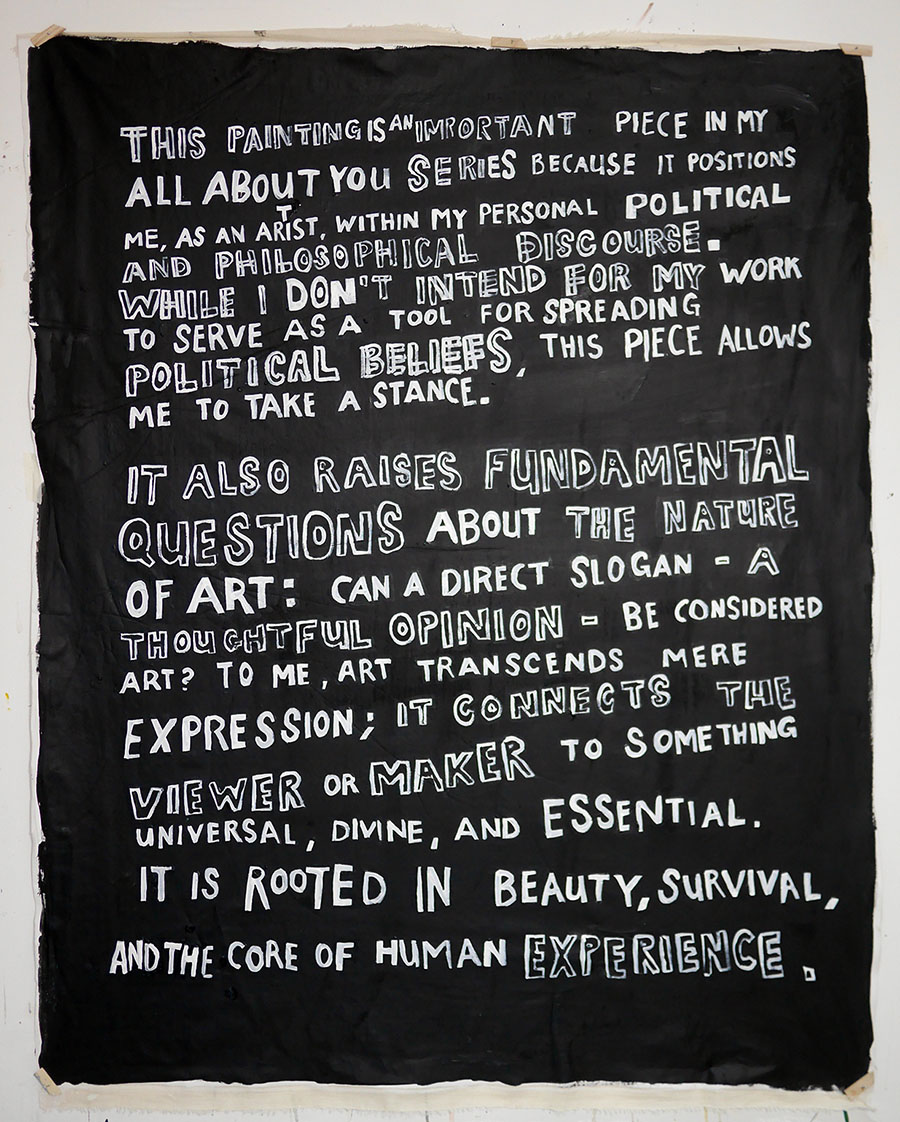 THIS PAINTING IS AN IMPORTANT PIECE IN MY
ALL ABOUT YOU SERIES BECAUSE IT POSITIONS
ME, AS AN ARTIST, WITHIN MY PERSONAL POLITICAL
AND PHILOSOPHICAL DISCOURSE.
WHILE I DON'T INTEND FOR MY WORK
TO SERVE AS A TOOL FOR SPREADING
POLITICAL BELIEFS, THIS PIECE ALLOWS
ME TO TAKE A STANCE.
IT ALSO RAISES FUNDAMENTAL
QUESTIONS ABOUT THE NATURE
OF ART: CAN A DIRECT SLOGAN - A
THOUGHTFUL OPINION - BE CONSIDERED
ART? TO ME, ART TRANSCENDS MERE
EXPRESSION; IT CONNECTS THE
VIEWER OR MAKER TO SOMETHING
UNIVERSAL, DIVINE, AND ESSENTIAL.
IT IS ROOTED IN BEAUTY, SURVIVAL,
AND THE CORE OF HUMAN EXPERIENCE.